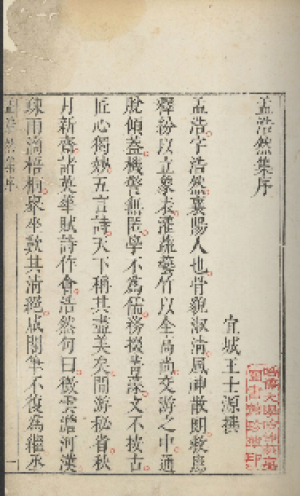 孟浩然集序
宜城王士源撰
孟浩字浩然襄陽人也骨貌淑清風神散朗救患
釋紛以立義表灌蔬藝竹以全高尚交游之中通
脫傾蓋機警無匿學不為儒務掇菁藻文不按古
匠心獨妙五言詩天下稱其盡美矣閒游秘省秋
月新霽諸英華賦詩作會浩然句曰微雲澹河漢
疎雨滴梧桐舉坐歎其清絕咸閣筆不復為繼丞
孟浩然集序
哈佛大學哈佛燕京
圖書館珍藏印